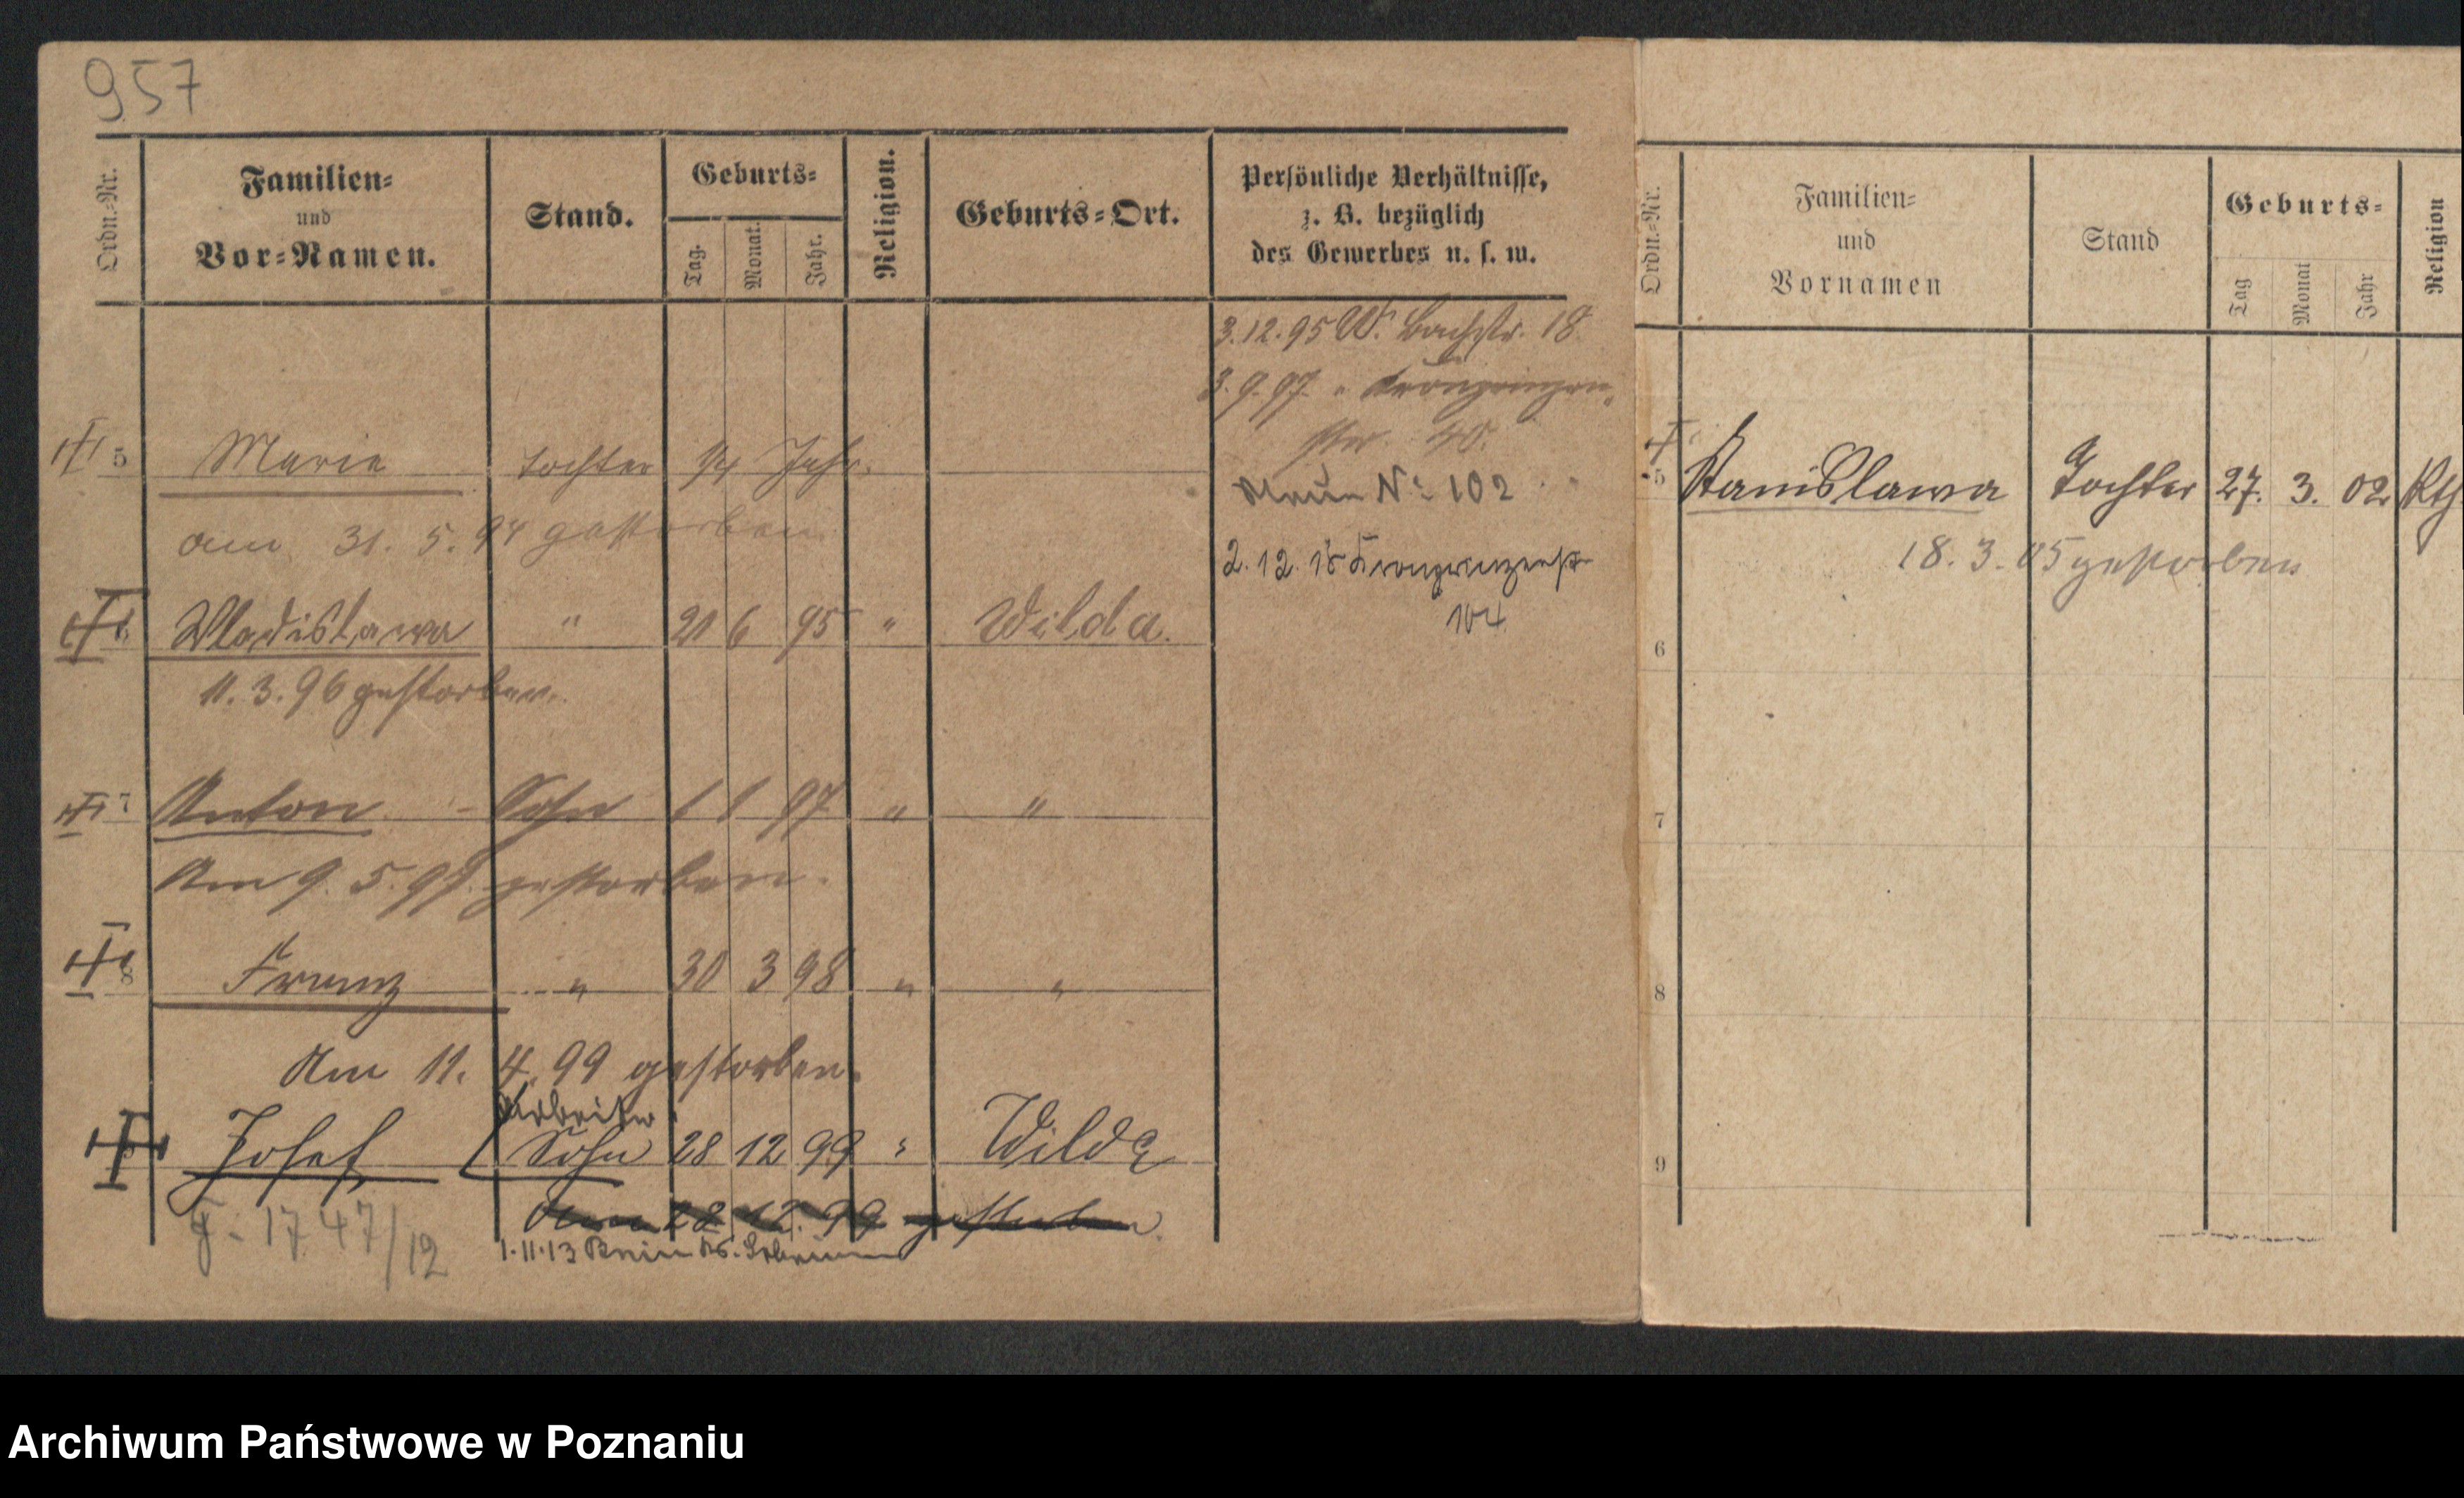 957
Ordn.-Nr.
Familien-
und
Vor-Namen.
Stand.
Geburts-
Tag.
Monat.
Jahr.
Religion.
Geburts-Ort.
Persönliche Verhältnisse,
z. B. bezüglich
des Gewerbes u. s. w.
3.12.95 W. Bachstr. 18.
3.9.97. " Kronprinzen
str. 40.
N: 102
2.12.18 Kronprinzenstr.
104
5 Marie Tochter 1/4 Jahr.
am 31. 5. 94 gestorben
6 Wladislawa " 21 6 95 " Wilda.
11. 3. 96 gestorben.
7 Anton - Sohn 1 1 97 " "
Am 9. 5. 97. gestorben.
8 Franz " 30 3 98 " "
Am 11. 4. 99 gestorben.
Arbeiter
Josef Sohn 28 12 99 " Wilda
Am 28 12. 99 gestorben.
1.11.13 Bnin Kr. Schrimm
J. 1747/12
Ordn.-Nr.
Familien-
und
Vornamen
Stand
Geburts-
Tag
Monat
Jahr
Religion
5 Stanislawa Tochter 27. 3. 02 Kth
18. 3. 05 gestorben
6
7
8
9
Archiwum Państwowe w Poznaniu